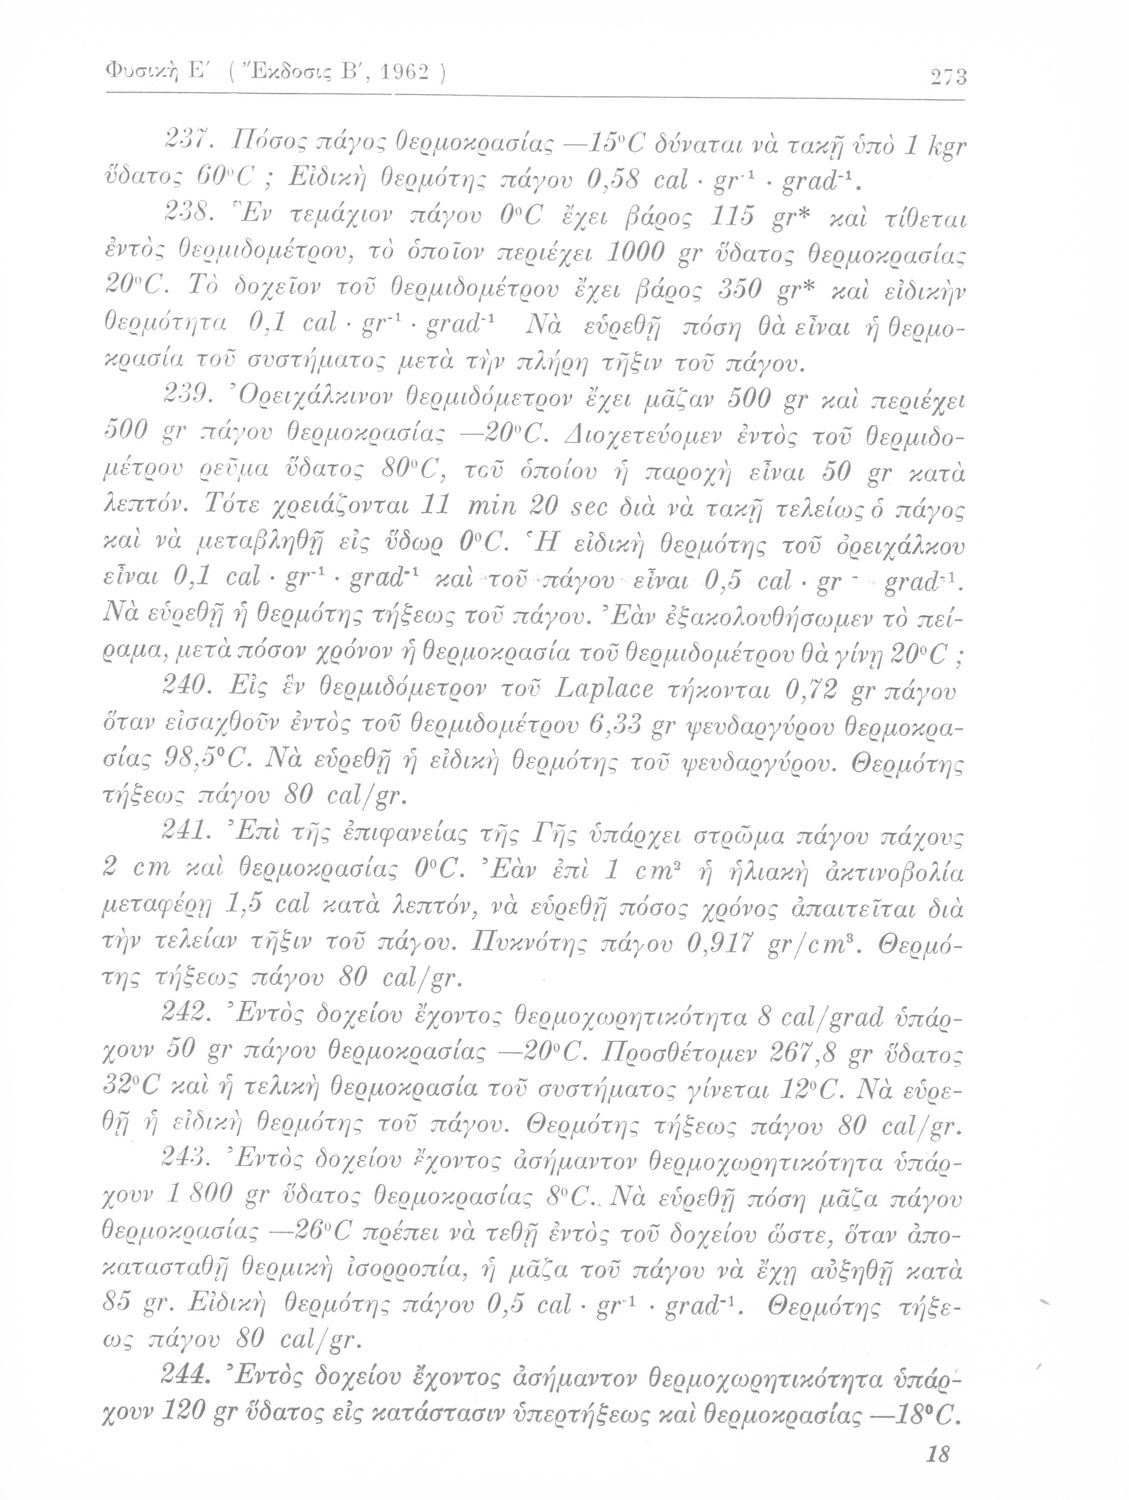 Φυσικὴ Ε′ ( Ἔκδοσις Β′, 1962 ) 273
237. Πόσος πάγος θερμοκρασίας —15⁰C δύναται νὰ τακῇ ὑπὸ 1 kgr
ὕδατος 60⁰C ; Εἰδικὴ θερμότης πάγου 0,58 cal · gr⁻¹ · grad⁻¹.
238. Ἓν τεμάχιον πάγου 0⁰C ἔχει βάρος 115 gr* καὶ τίθεται
ἐντὸς θερμιδομέτρου, τὸ ὁποῖον περιέχει 1000 gr ὕδατος θερμοκρασίας
20⁰C. Τὸ δοχεῖον τοῦ θερμιδομέτρου ἔχει βάρος 350 gr* καὶ εἰδικὴν
θερμότητα 0,1 cal · gr⁻¹ · grad⁻¹ Νὰ εὑρεθῇ πόση θὰ εἶναι ἡ θερμο-
κρασία τοῦ συστήματος μετὰ τὴν πλήρη τῆξιν τοῦ πάγου.
239. Ὀρειχάλκινον θερμιδόμετρον ἔχει μᾶζαν 500 gr καὶ περιέχει
500 gr πάγου θερμοκρασίας —20⁰C. Διοχετεύομεν ἐντὸς τοῦ θερμιδο-
μέτρου ρεῦμα ὕδατος 80⁰C, τοῦ ὁποίου ἡ παροχὴ εἶναι 50 gr κατὰ
λεπτόν. Τότε χρειάζονται 11 min 20 sec διὰ νὰ τακῇ τελείως ὁ πάγος
καὶ νὰ μεταβληθῇ εἰς ὕδωρ 0⁰C. Ἡ εἰδικὴ θερμότης τοῦ ὀρειχάλκου
εἶναι 0,1 cal · gr⁻¹ · grad⁻¹ καὶ τοῦ πάγου εἶναι 0,5 cal · gr⁻ grad⁻¹.
Νὰ εὑρεθῇ ἡ θερμότης τήξεως τοῦ πάγου. Ἐὰν ἐξακολουθήσωμεν τὸ πεί-
ραμα, μετὰ πόσον χρόνον ἡ θερμοκρασία τοῦ θερμιδομέτρου θὰ γίνῃ 20⁰C ;
240. Εἰς ἓν θερμιδόμετρον τοῦ Laplace τήκονται 0,72 gr πάγου
ὅταν εἰσαχθοῦν ἐντὸς τοῦ θερμιδομέτρου 6,33 gr ψευδαργύρου θερμοκρα-
σίας 98,5⁰C. Νὰ εὑρεθῇ ἡ εἰδικὴ θερμότης τοῦ ψευδαργύρου. Θερμότης
τήξεως πάγου 80 cal/gr.
241. Ἐπὶ τῆς ἐπιφανείας τῆς Γῆς ὑπάρχει στρῶμα πάγου πάχους
2 cm καὶ θερμοκρασίας 0⁰C. Ἐὰν ἐπὶ 1 cm² ἡ ἡλιακὴ ἀκτινοβολία
μεταφέρῃ 1,5 cal κατὰ λεπτόν, νὰ εὑρεθῇ πόσος χρόνος ἀπαιτεῖται διὰ
τὴν τελείαν τῆξιν τοῦ πάγου. Πυκνότης πάγου 0,917 gr/cm³. Θερμό-
της τήξεως πάγου 80 cal/gr.
242. Ἐντὸς δοχείου ἔχοντος θερμοχωρητικότητα 8 cal/grad ὑπάρ-
χουν 50 gr πάγου θερμοκρασίας —20⁰C. Προσθέτομεν 267,8 gr ὕδατος
32⁰C καὶ ἡ τελικὴ θερμοκρασία τοῦ συστήματος γίνεται 12⁰C. Νὰ εὑρε-
θῇ ἡ εἰδικὴ θερμότης τοῦ πάγου. Θερμότης τήξεως πάγου 80 cal/gr.
243. Ἐντὸς δοχείου ἔχοντος ἀσήμαντον θερμοχωρητικότητα ὑπάρ-
χουν 1 800 gr ὕδατος θερμοκρασίας 8⁰C. Νὰ εὑρεθῇ πόση μᾶζα πάγου
θερμοκρασίας —26⁰C πρέπει νὰ τεθῇ ἐντὸς τοῦ δοχείου ὥστε, ὅταν ἀπο-
κατασταθῇ θερμικὴ ἰσορροπία, ἡ μᾶζα τοῦ πάγου νὰ ἔχῃ αὐξηθῇ κατὰ
85 gr. Εἰδικὴ θερμότης πάγου 0,5 cal · gr⁻¹ · grad⁻¹. Θερμότης τήξε-
ως πάγου 80 cal/gr.
244. Ἐντὸς δοχείου ἔχοντος ἀσήμαντον θερμοχωρητικότητα ὑπάρ-
χουν 120 gr ὕδατος εἰς κατάστασιν ὑπερτήξεως καὶ θερμοκρασίας —18⁰C.
18